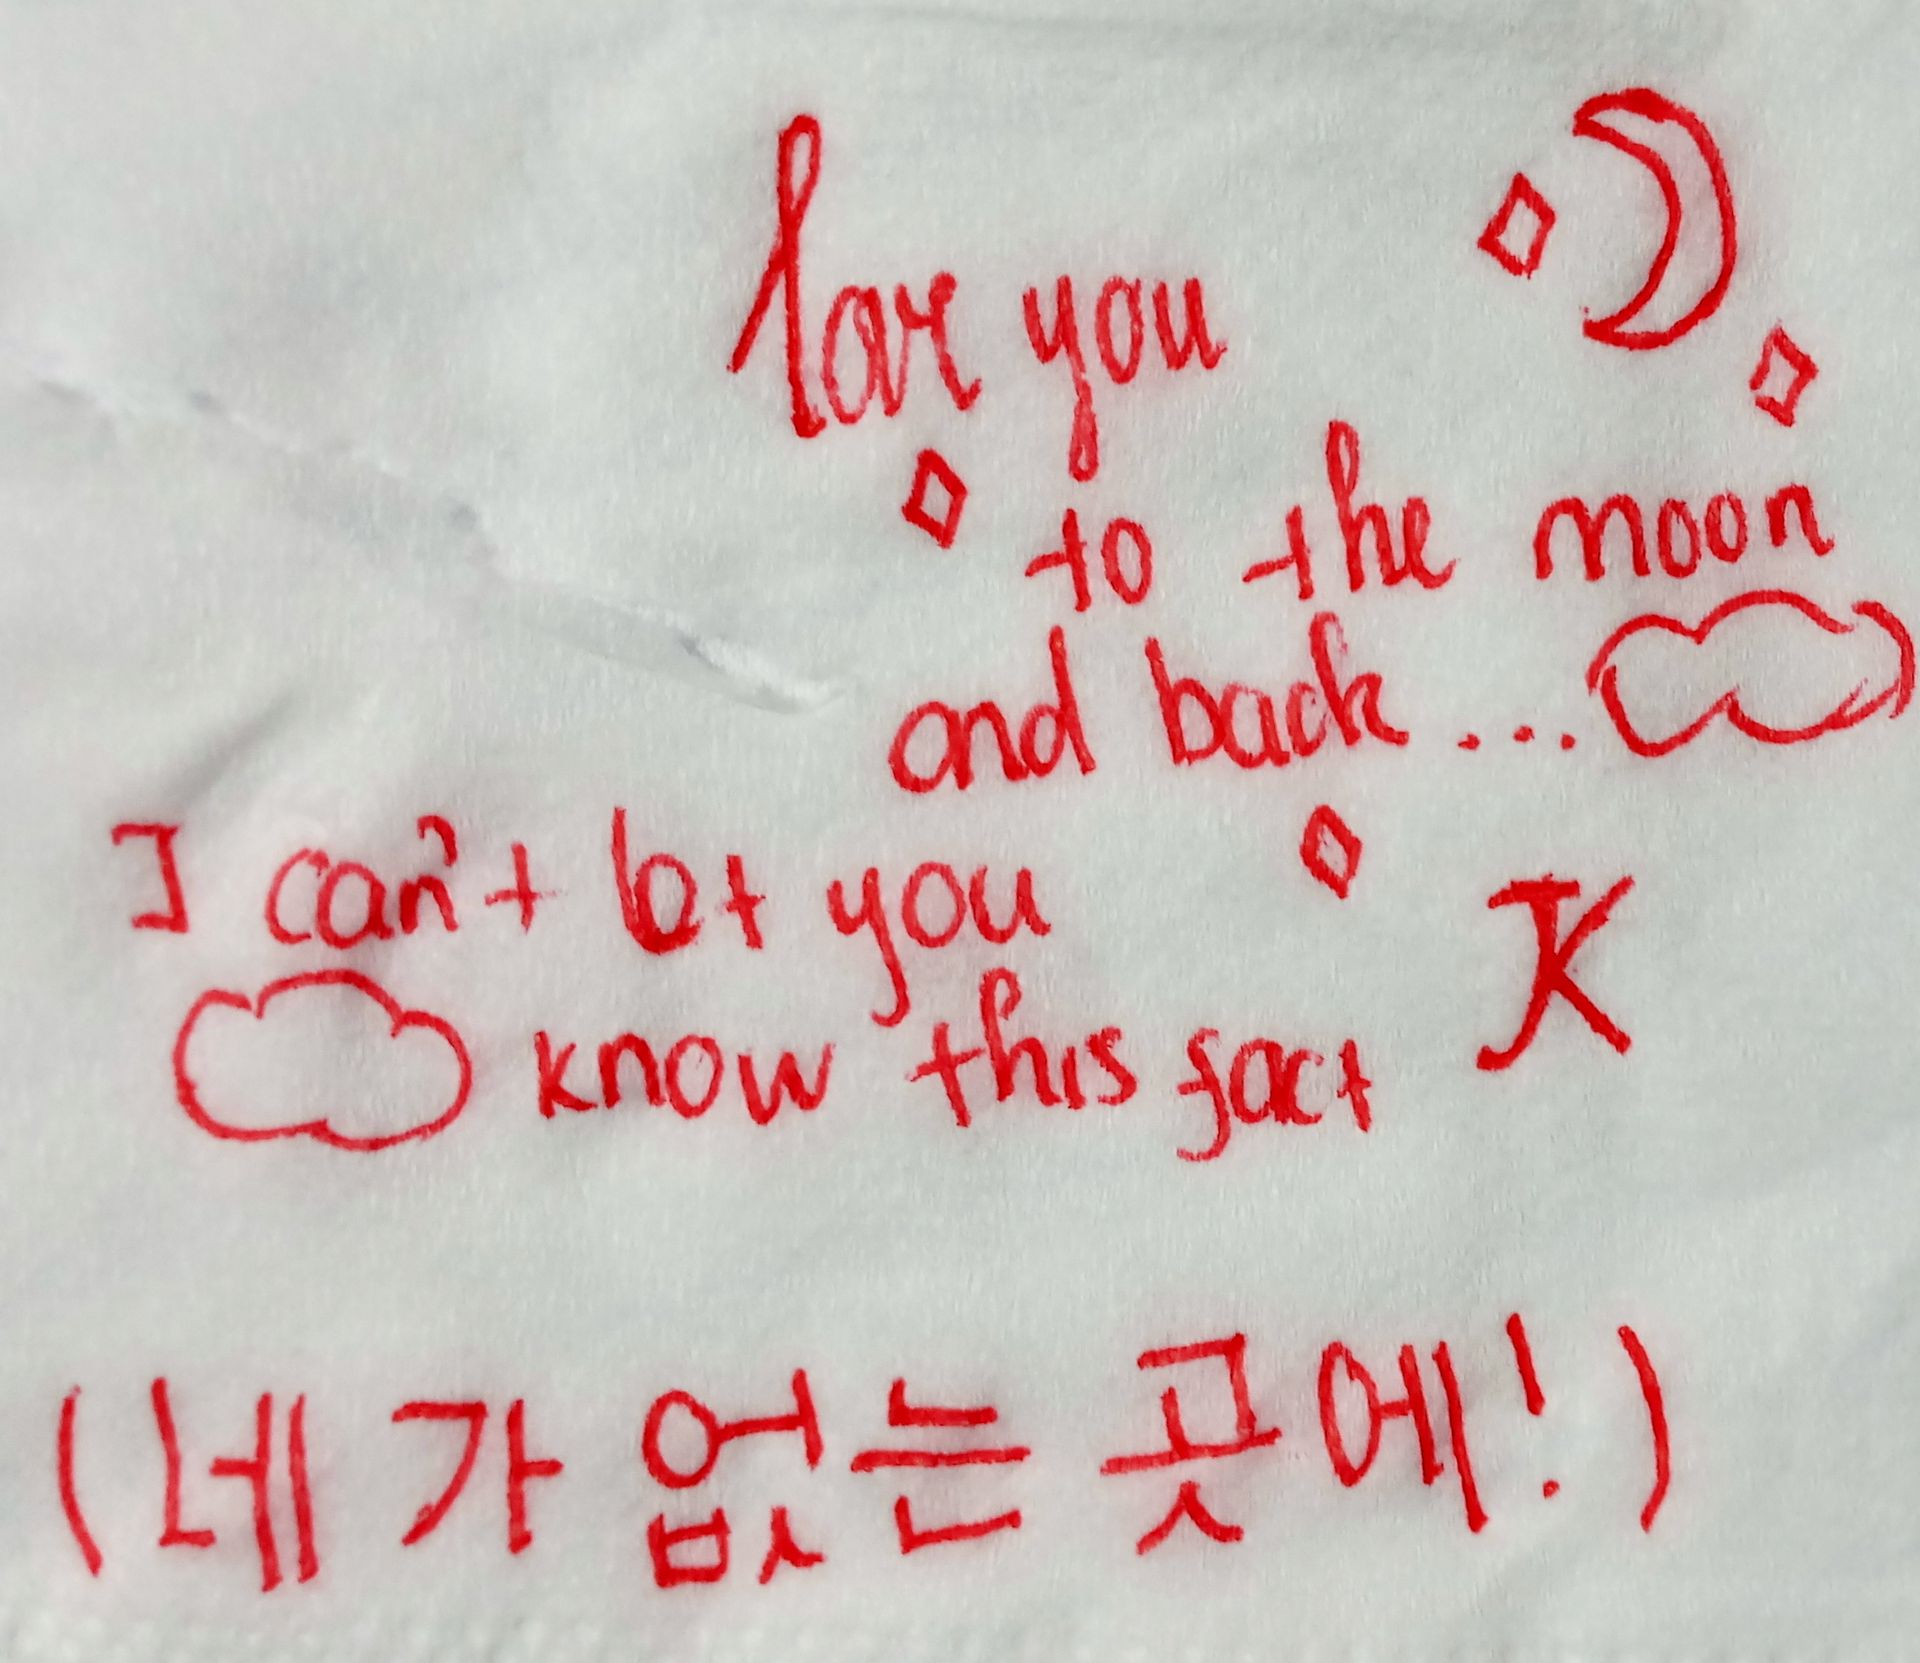 love you
to the moon
and back...
I can't let you
know this fact
JK
(네가 없는 곳에!)